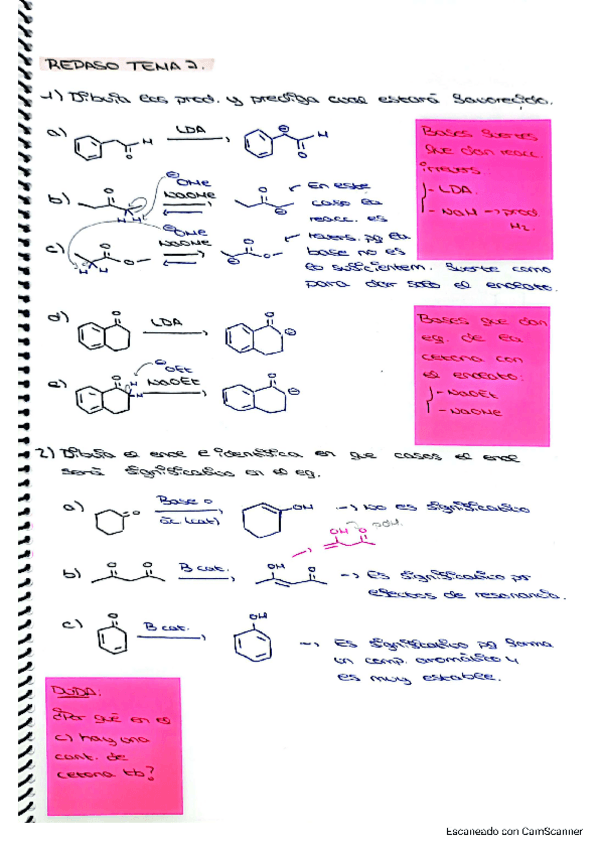 REPASO TEMA 2.
1) Dibuja los prod. y prediga cual estará favorecido.
a) LDA
H
O
H
O
Bases fuertes
que dan reacc.
irrevers.
- LDA.
- NaH → prod.
H2.
b) O
H H
⊖OMe
NaOMe
O
En este
caso la
reacc. es
c) O
O
H H
⊖OMe
NaOMe
O
O
revers. pq la
base no es
lo suficientem. fuerte como
para dar solo el enolato.
d) O
LDA
O
Bases que dan
eq. de la
cetona con
el enolato:
- NaOEt
- NaOMe
e) O
H
H
⊖OEt
NaOEt
O
2) Dibuja el enol e identifica en que casos el enol
será significativo en el eq.
a) O
Base o
ác. (cat)
OH
→ No es significativo
OH O
b) O O
B cat.
OH O
→ Es significativo por
efectos de resonancia.
c) O
B cat.
OH
→ Es significativo pq forma
un comp. aromático y
es muy estable.
DUDA:
¿Por qué en el
c) hay una
cant. de
cetona tb?
Escaneado con CamScanner